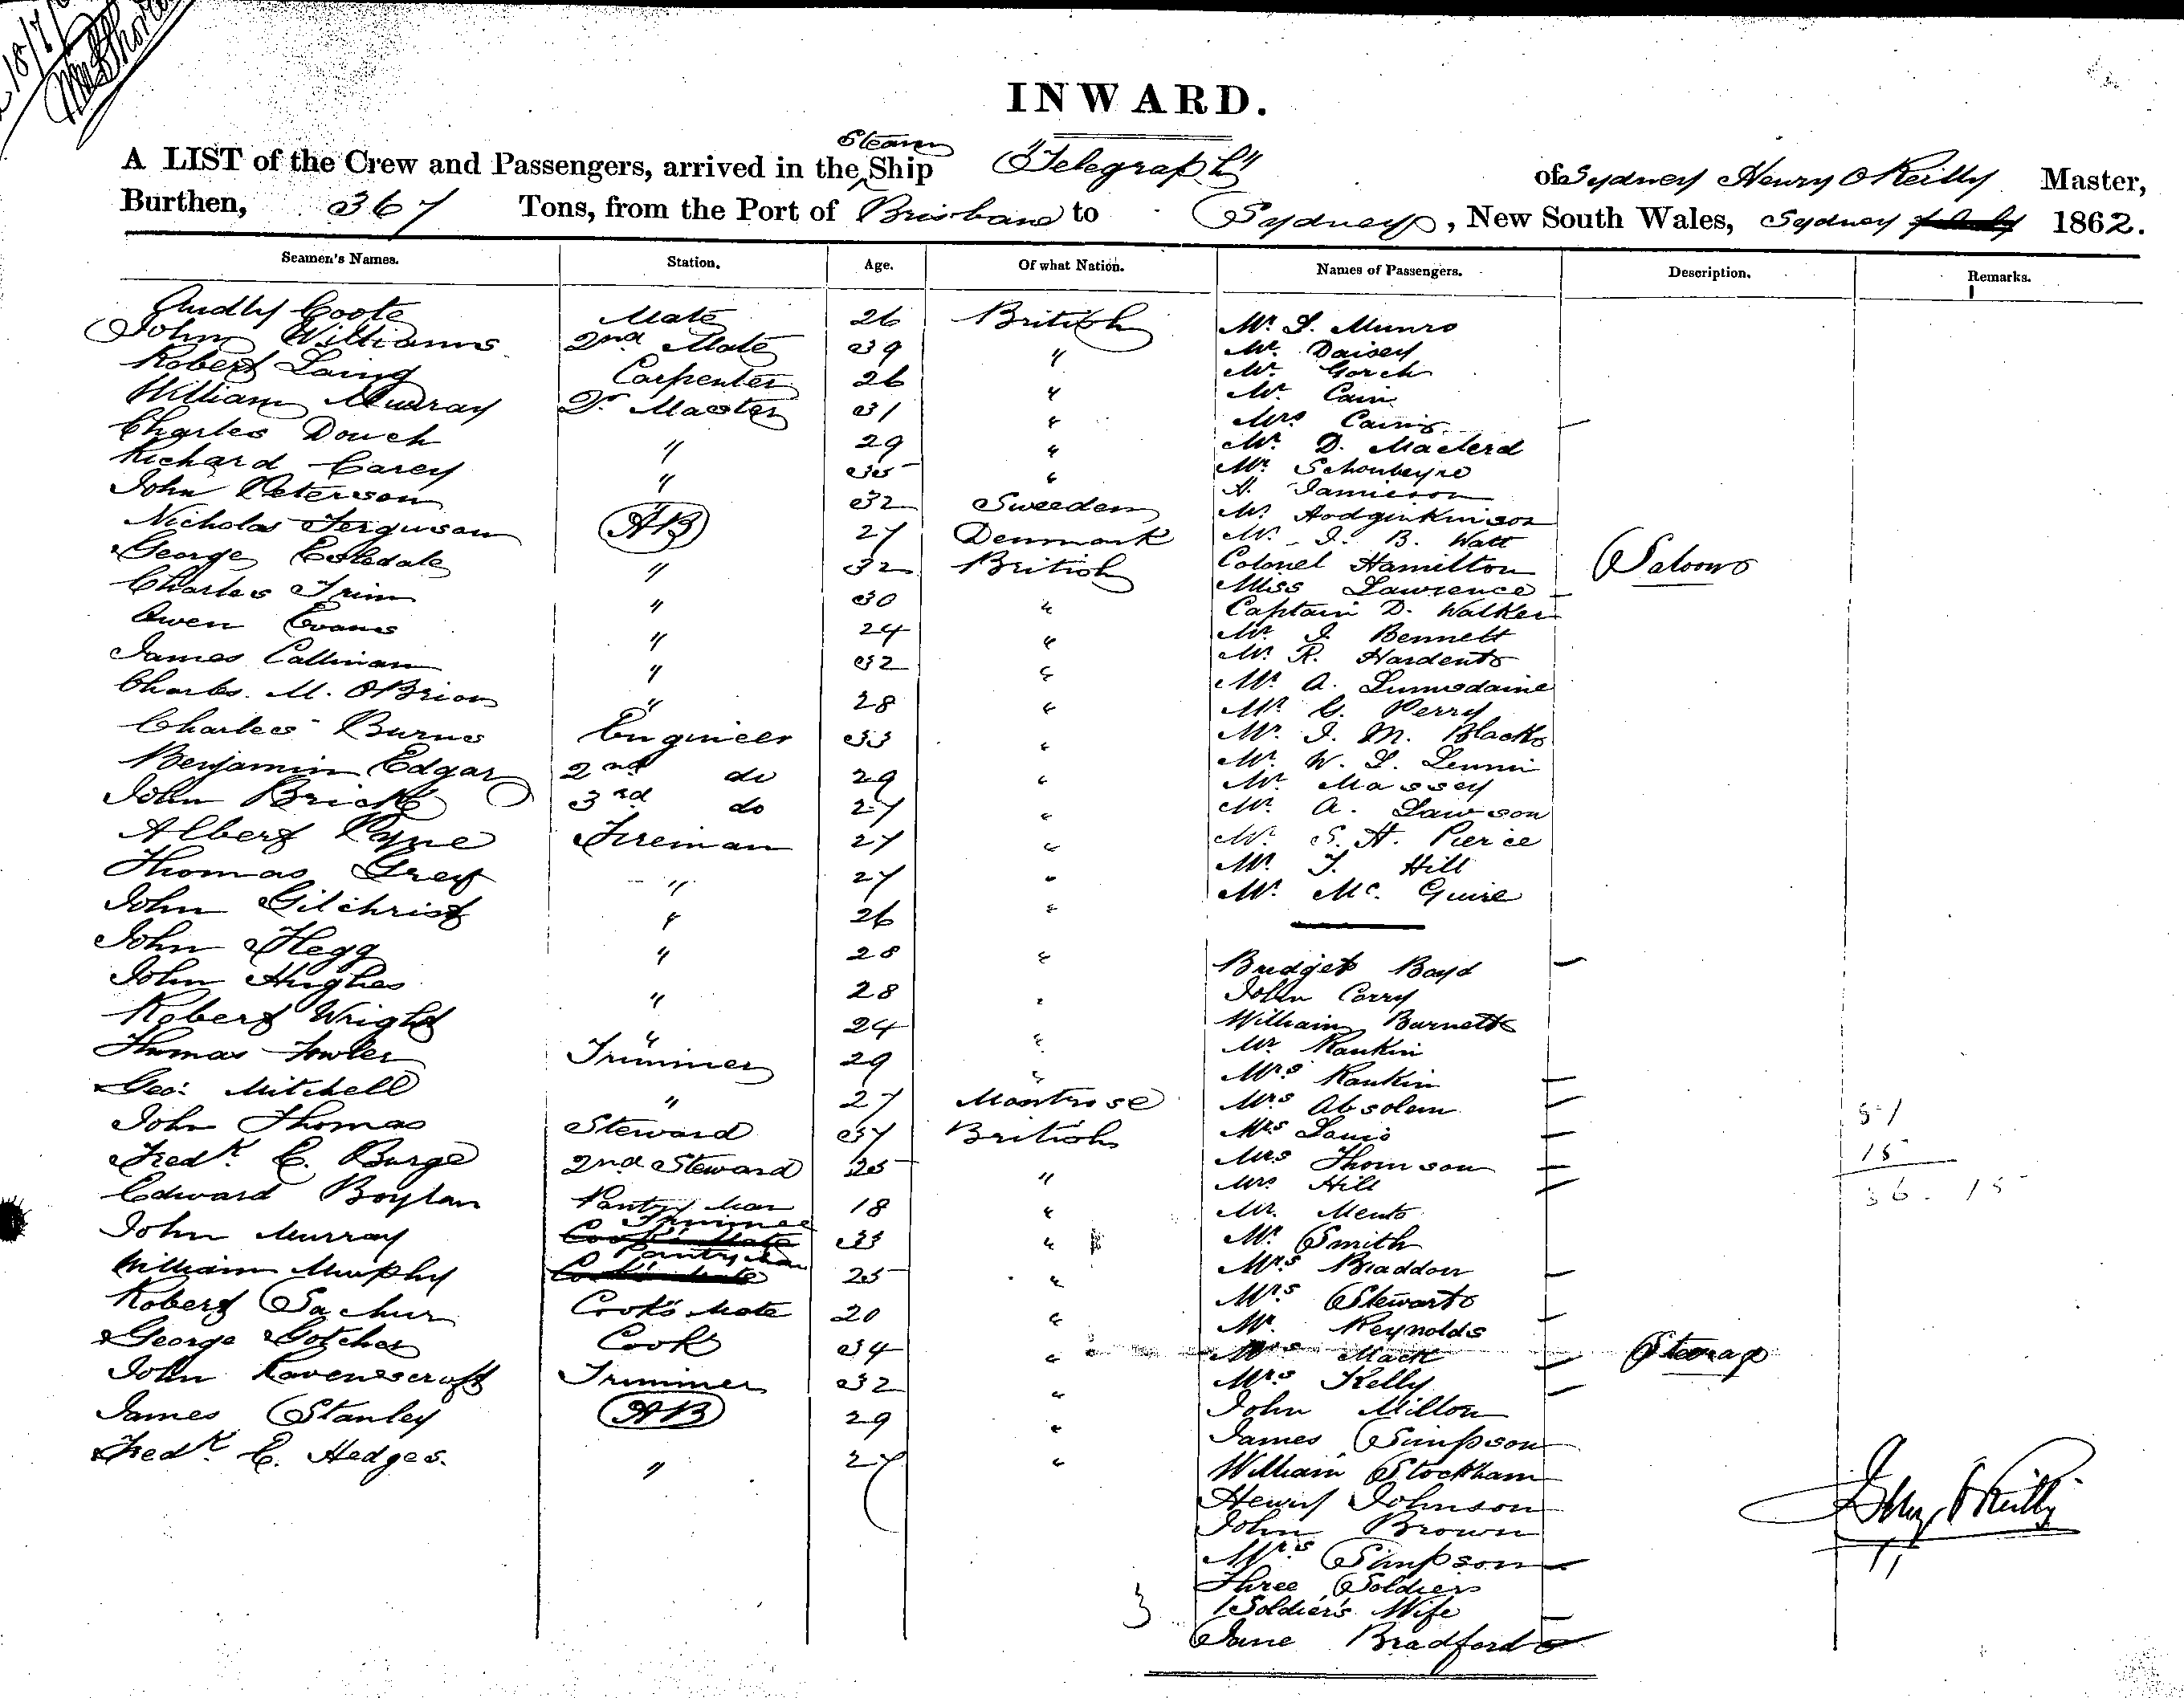 18/7/
INWARD.
A LIST of the Crew and Passengers, arrived in the Steam Ship "Telegraph" of Sydney Henry O'Reilly Master,
Burthen, 367 Tons, from the Port of Brisbane to Sydney, New South Wales, Sydney 1862.
Seamen's Names. Station. Age. Of what Nation. Names of Passengers. Description. Remarks.
Audly Coote Mate 26 British
John Williams 2nd Mate 39 "
Robert Laing Carpenter 26 "
William Murray Qr. Master 31 "
Charles Douch " 29 "
Richard Carey " 35 "
John Peterson " 32 Sweeden
Nicholas Ferguson AB 27 Denmark
George Esledale " 32 British
Charles Trim " 30 "
Owen Evans " 24 "
James Callinan " 32 "
Charles. M. OBrion " 28 "
Charles Burns Engineer 33 "
Benjamin Edgar 2nd do 29 "
John Brick 3rd do 27 "
Albert Pyne Fireman 27 "
Thomas Grey " 27 "
John Gilchrist " 26 "
John Flegg " 28 "
John Hughes " 28 "
Robert Wright " 24 "
Thomas Fowler Trimmer 29 "
Geo: Mitchell " 27 Montrose
John Thomas Steward 37 British
Fredk. C. Burge 2nd Steward 25 "
Edward Boylan Pantry Man 18 "
John Murray Trimmer 33 "
William Murphy Pantry Man 25 "
Robert Sachur Cook's Mate 20 "
George Gotcher Cook 34 "
John Ravenscroft Trimmer 32 "
James Stanley AB 29 "
Fredk. C. Hedges. " 27 "
Mr. L. Munro
Mr. Daisey
Mr. Gorch
Mr. Cain
Mrs Cain
Mr. D. Maclerd
Mr Schonheyne
A. Jamieson
Mr Hodginkinson
Mr. J. B. Watt
Colonel Hamilton
Miss Lawrence
Captain D. Walker
Mr. J. Bennett
Mr. R. Hardent
Mr. A. Lumsdaine
Mr. G. Perry
Mr. J. M. Black
Mr. W. L.
Mr. Massey
Mr. A. Lawson
Mr. S. H. Pierce
Mr. T. Hill
Mr. Mc. Guire
Saloon
Bridget Boyd
John Corry
William Burnett
Mr Rankin
Mrs Rankin
Mrs Absolem
Mrs Louis
Mrs Thomson
Mrs Hill
Mr. Ment
Mr. Smith
Mrs Braddon
Mrs Stewart
Mr. Reynolds
Mrs Mack
Mrs Kelly
John Milton
James Simpson
William Stockham
Henry Johnson
John Brown
Mrs Simpson
Three Soldiers
1 Soldier's Wife
3
Jane Bradford
Steerage
51
15
36. 15